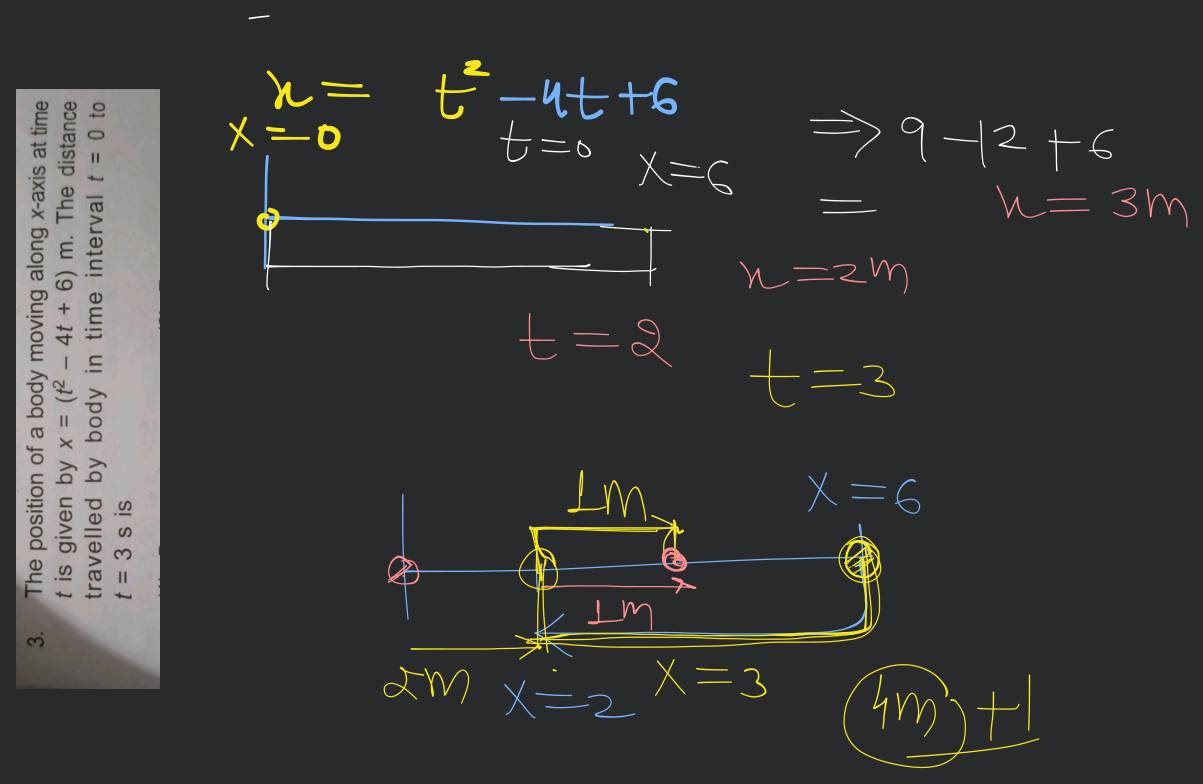 3. The position of a body moving along x-axis at time
t is given by x = (t² – 4t + 6) m. The distance
travelled by body in time interval t = 0 to
t = 3 s is
x = t² -4t+6
x=0
t=0
x=6
⇒ 9-12+6
= x = 3m
x=2m
t=2
t=3
1m
x=6
1m
2m
x=2
x=3
4m+1